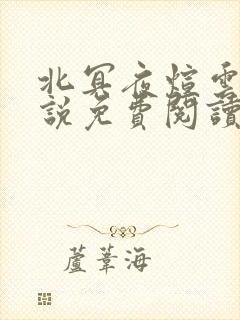 北冥夜煊雲
說免費閱讀
蘆葦海